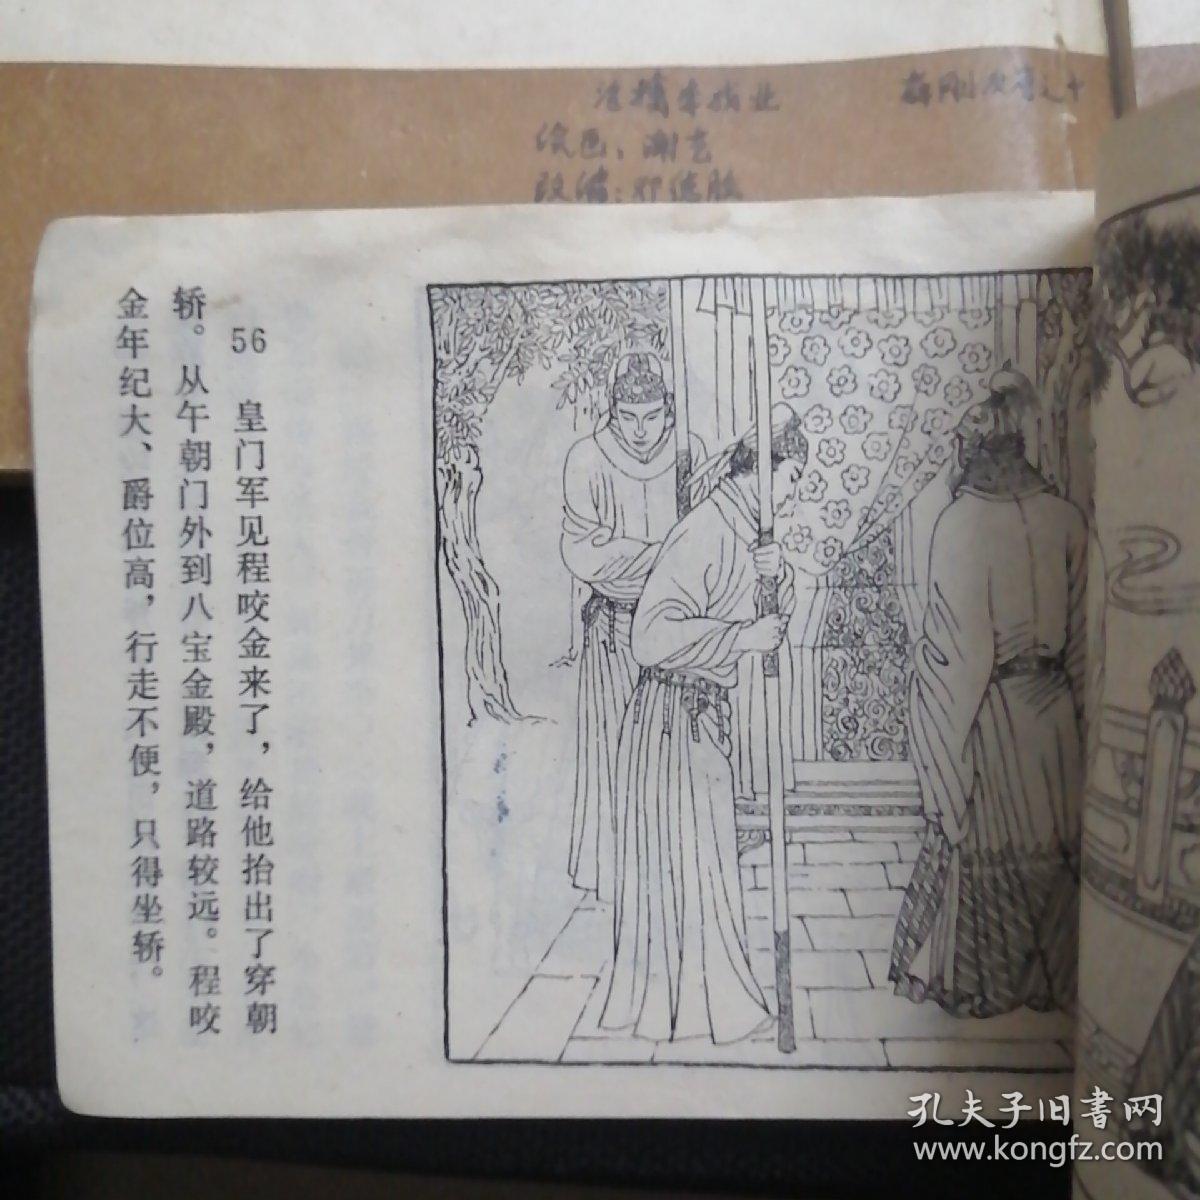 绘画：谢克
56 皇门军见程咬金来了，给他抬出了穿朝
轿。从午朝门外到八宝金殿，道路较远。程咬
金年纪大、爵位高，行走不便，只得坐轿。
孔夫子旧書网
www.kongfz.com